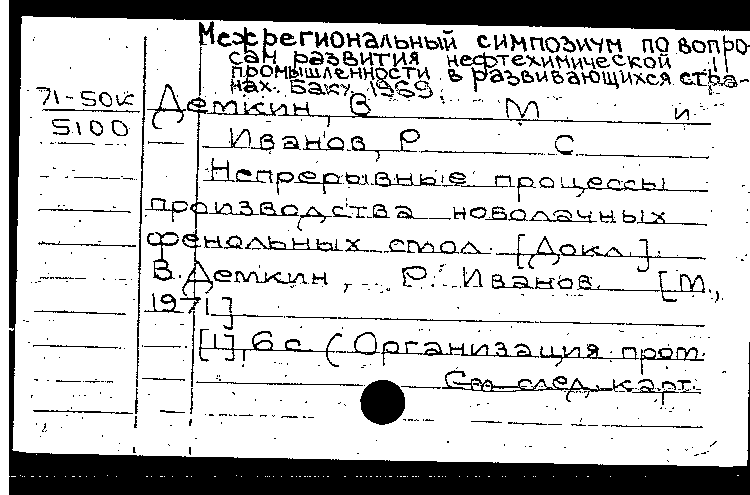 Межрегиональный симпозиум по вопро-
сам развития нефтехимической
промышленности в развивающихся стра-
нах. Баку, 1969.
71-50к
5100
Демкин, В М и
Иванов, Р С
Непрерывные процессы
производства новолачных
фенольных смол. [Докл.].
В. Демкин, Р. Иванов. [М.,
1971]
[1], 6 с. (Организация
См след. карт.